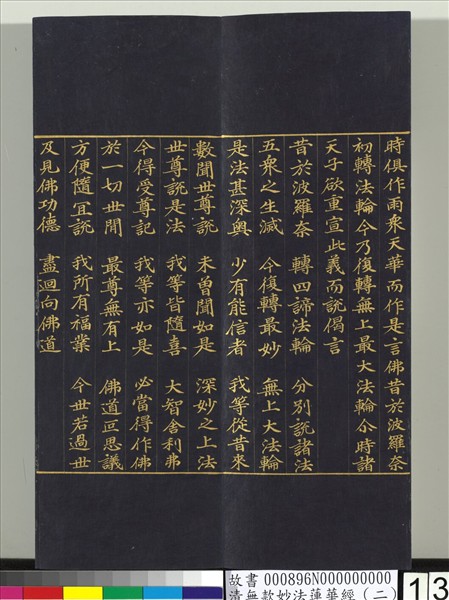 時俱作雨衆天華而作是言佛昔於波羅奈
初轉法輪今乃復轉無上最大法輪尒時諸
天子欲重宣此義而說偈言
昔於波羅奈 轉四諦法輪 分別說諸法
五衆之生滅 今復轉最妙 無上大法輪
是法甚深奧 少有能信者 我等從昔來
數聞世尊說 未曾聞如是 深妙之上法
世尊說是法 我等皆隨喜 大智舍利弗
今得受尊記 我等亦如是 必當得作佛
於一切世間 最尊無有上 佛道叵思議
方便隨冝說 我所有福業 今世若過世
及見佛功德 盡迴向佛道
故書 000896N000000000
清無款妙法蓮華經(二)
13